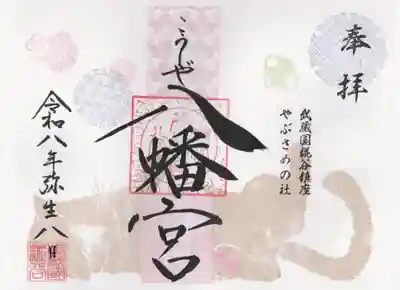 奉拝
武蔵國糀谷鎮座
やぶさめの社
八幡宮
令和八年弥生八日